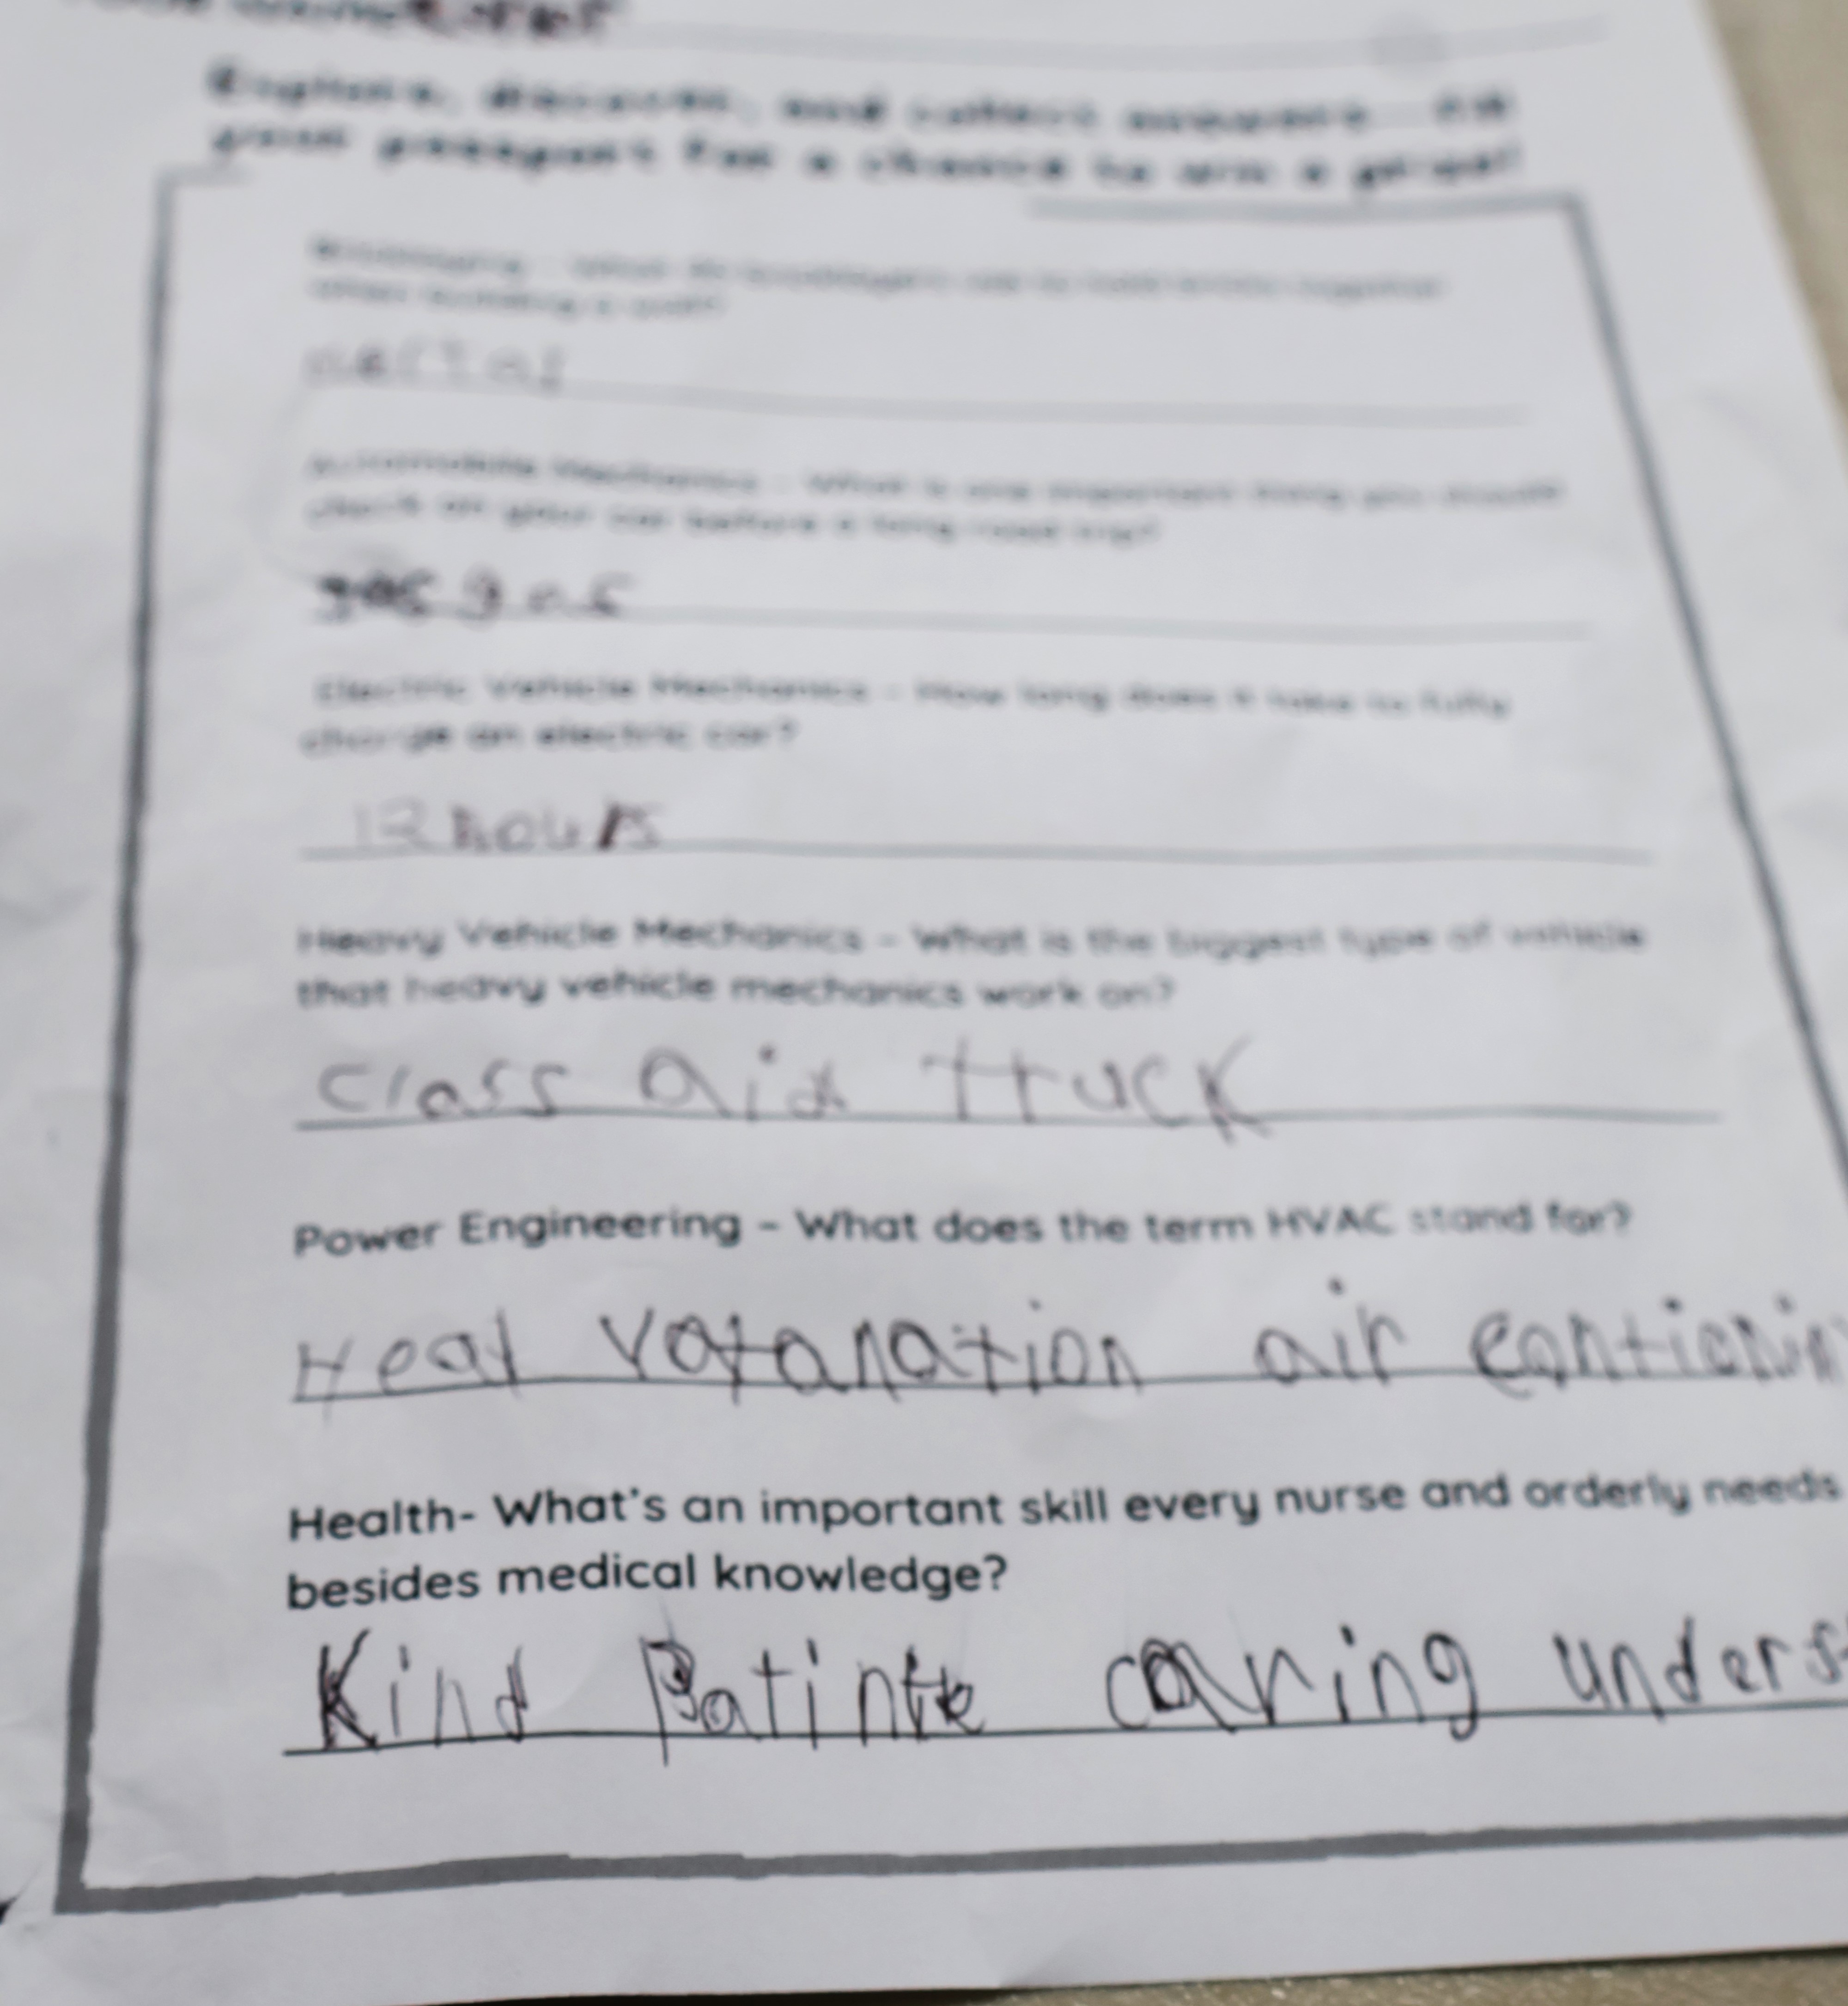 Explore, discover, and collect answers fill
your passport for a chance to win a prize!
Bricklaying - What do bricklayers use to hold bricks together
when building a wall?
Automobile Mechanics - What is one important thing you should
check on your car before a long road trip?
gas
Electric Vehicle Mechanics - How long does it take to fully
charge an electric car?
12 hours
Heavy Vehicle Mechanics - What is the biggest type of vehicle
that heavy vehicle mechanics work on?
class truck
Power Engineering - What does the term HVAC stand for?
Heat vatanation air
Health- What's an important skill every nurse and orderly needs
besides medical knowledge?
Kind caring unders